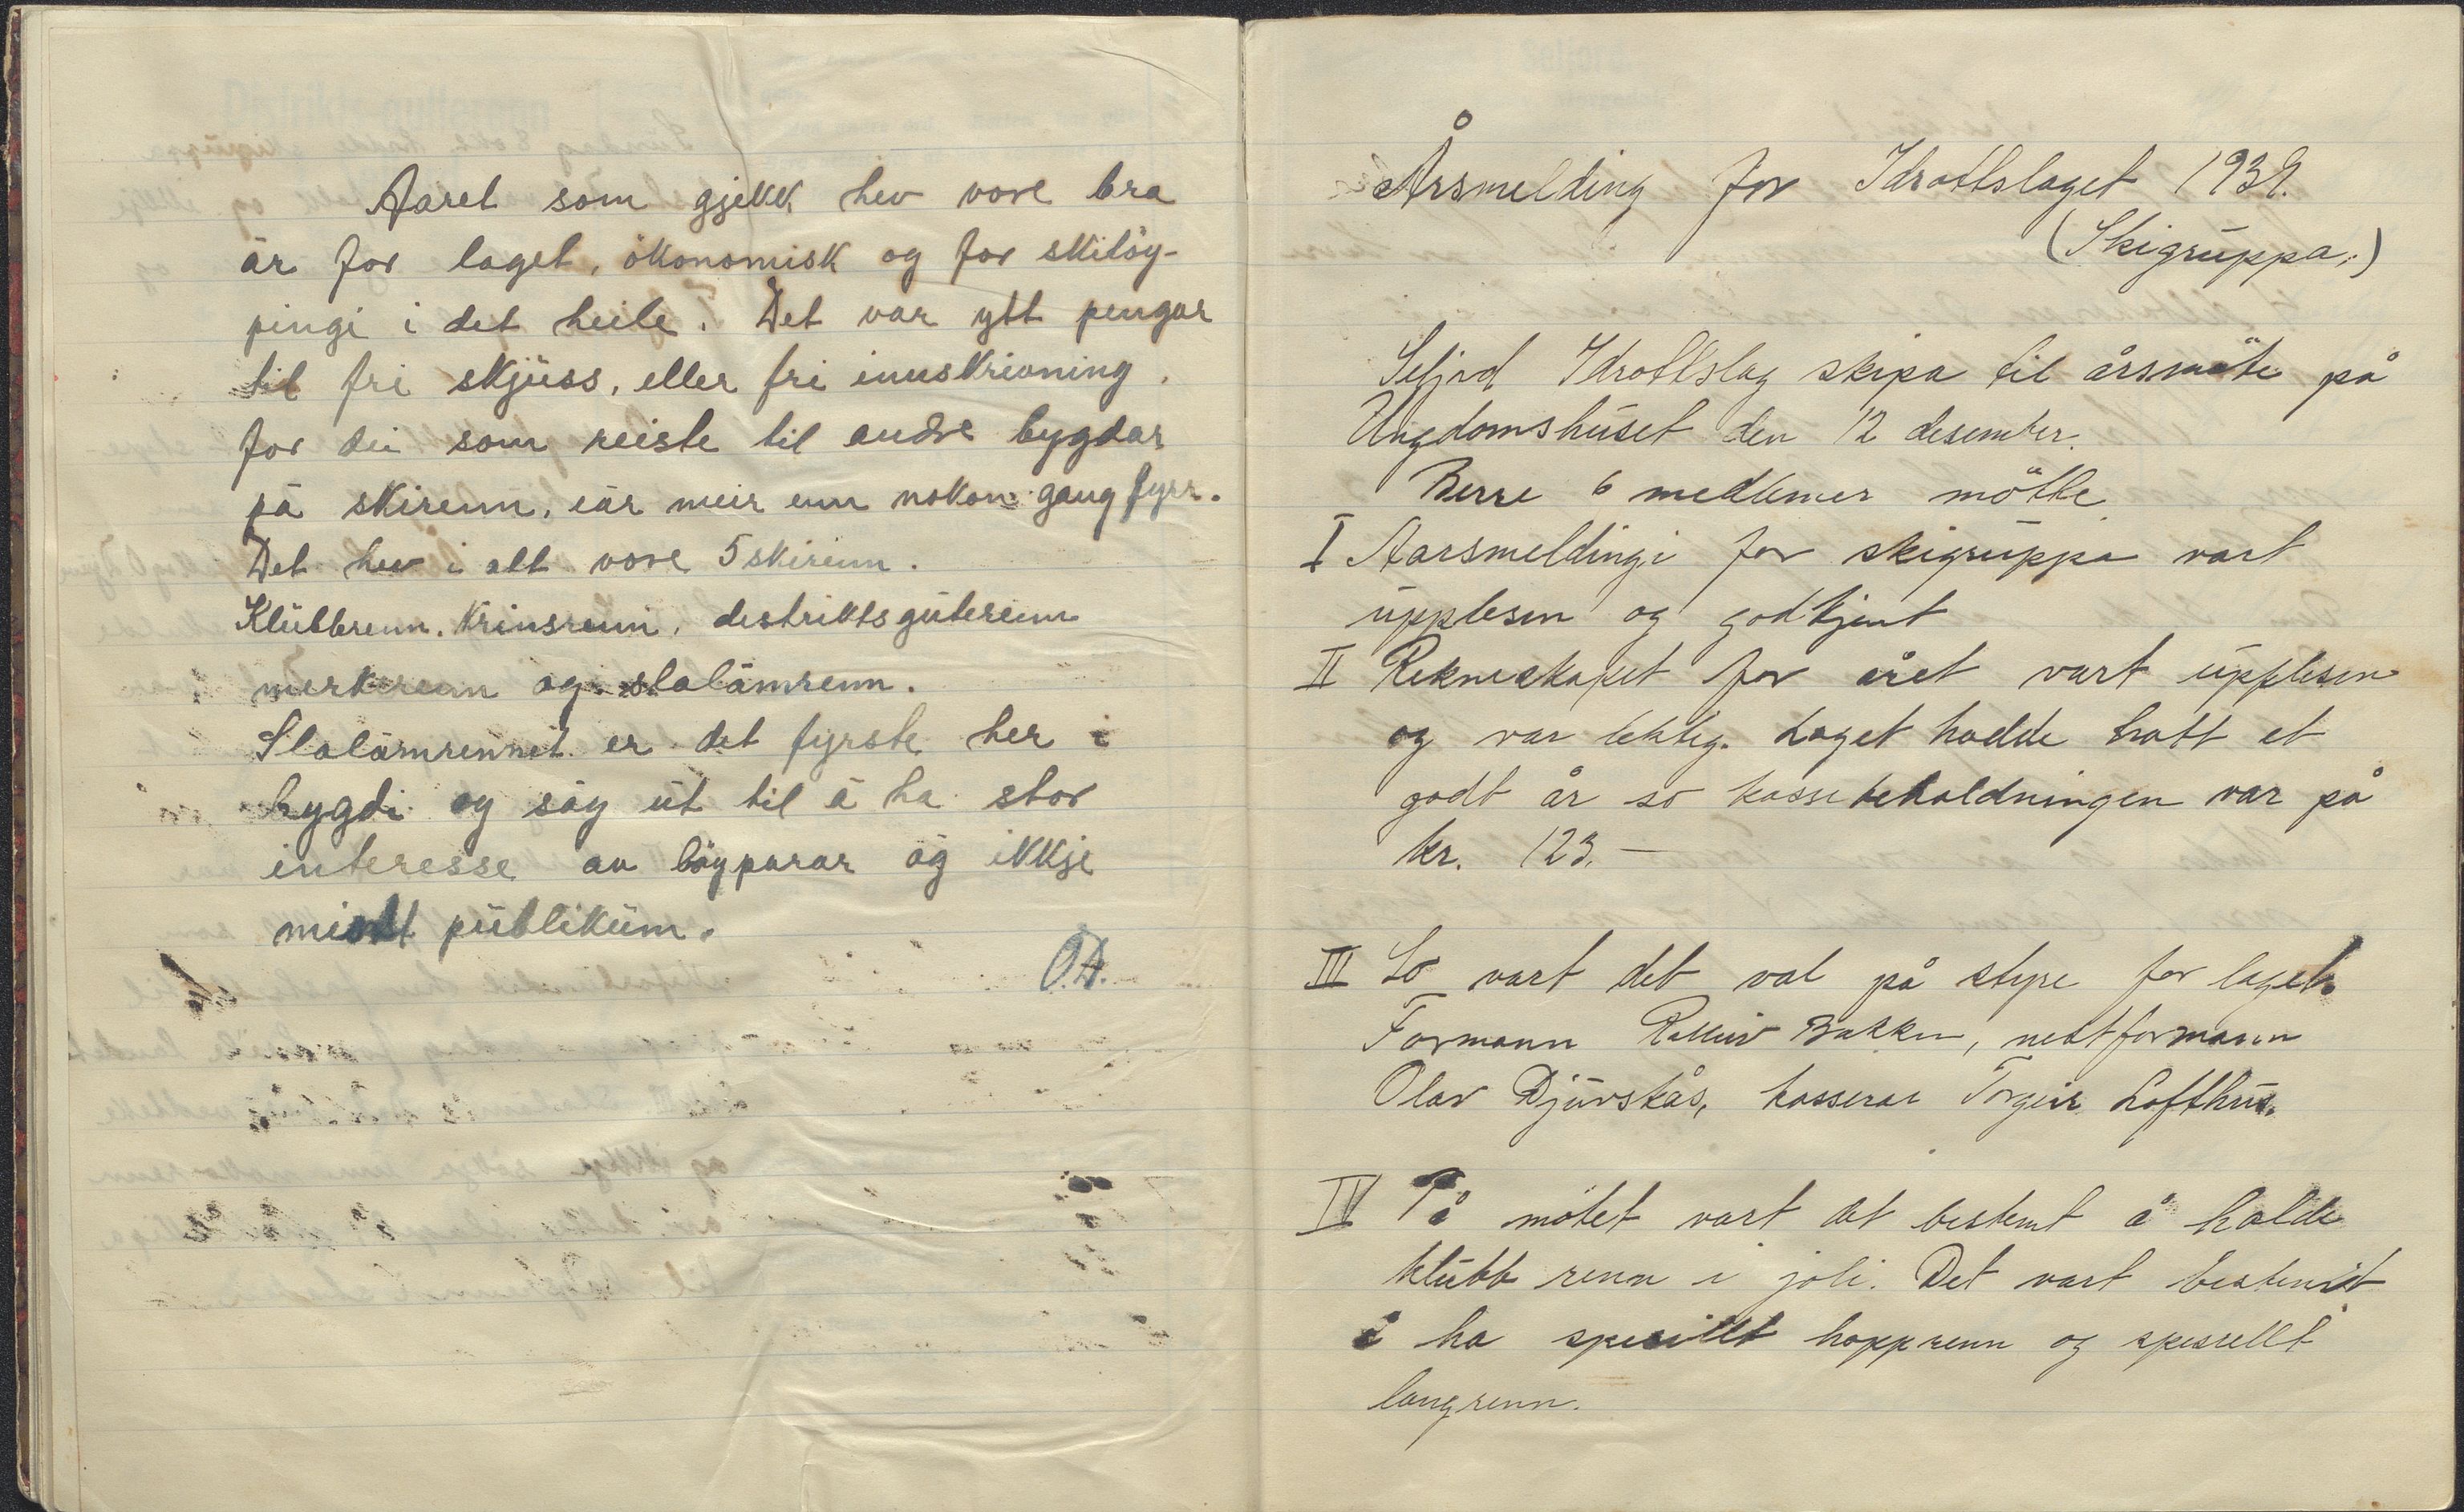 Aaret som gjekk hev vore bra
år for laget, ökonomisk og for skilöy-
pingi i det heile. Det var ytt pengar
til fri skjuss, eller fri innskrivning
for dei som reiste til andre bygdar
på skirenn, iår meir enn nokon gang fyrr.
Det hev i alt vore 5 skirenn.
Klubbrenn, Krinsrenn, destriktsguterenn
merkerenn og slalåmrenn.
Slalåmrennet er det fyrste her i
bygdi og såg ut til å ha stor
interesse av löyparar og ikkje
minst publikum.
O.D.
Årsmelding for Idrottslaget 1939.
(Skigruppa.)
Seljord Idrottslag skipa til årsmöte på
Ungdomshuset den 12 desember.
Berre 6 medlemer mötte
I Aarsmeldingi for skigruppa vart
upplesen og godkjent
II Rekneskapet for året vart upplesen
og var lekteg. Laget hadde hatt et
godt år so kassebeholdningen var på
kr. 123.—
III So vart det val på styre for laget.
Formann Bakken, nestformann
Olav Djuvskås, kasserar Torgeir Lofthus.
IV På mötet vart det bestemt å holde
klubb renn i joli. Det vart bestemt
å ha spesiellt hopprenn og spesiellt
langrenn.